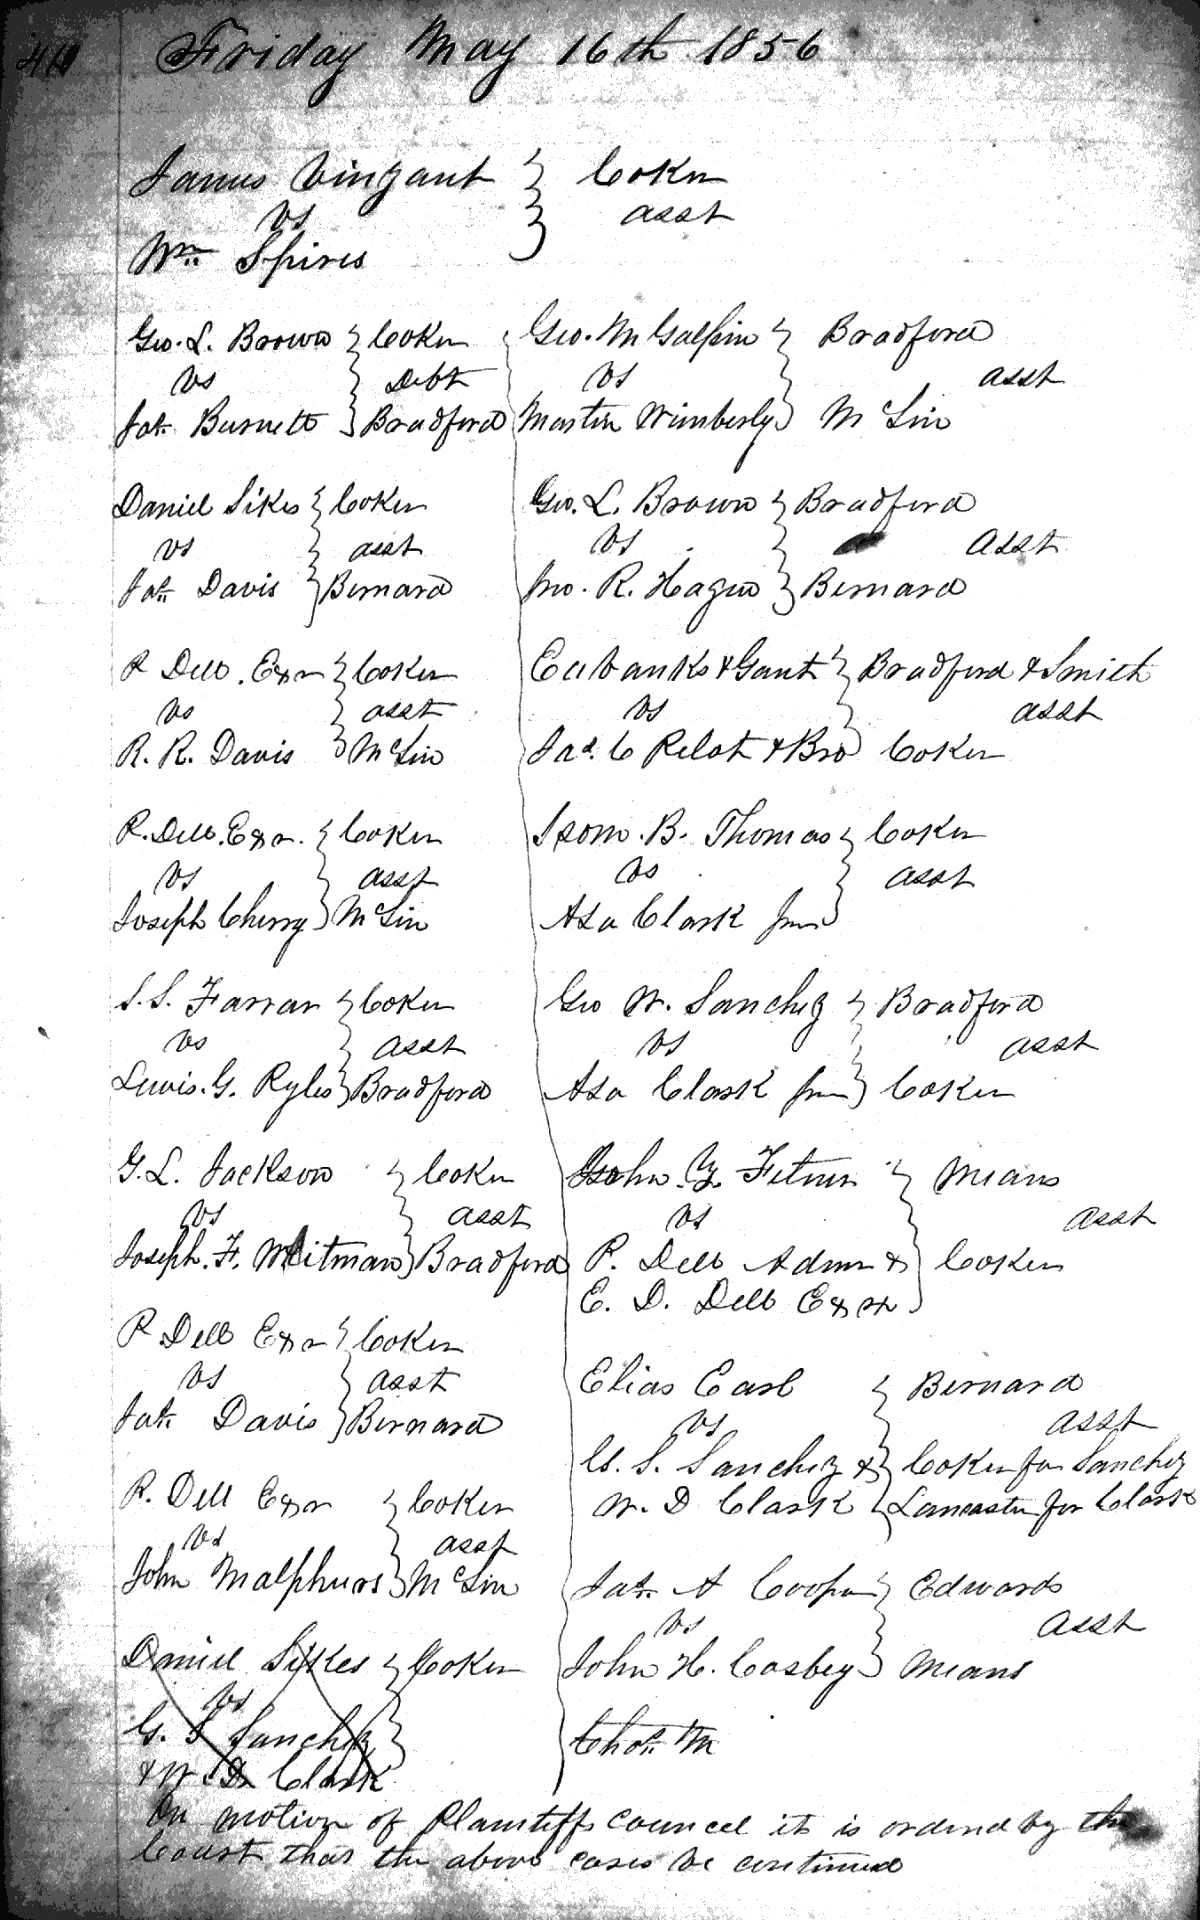 Friday May 16th 1856
James Vinzant } Coker
vs asst
Wm Spires
Geo. L. Brown } Coker
vs Debt
Jas. Burnett } Bradford
Daniel Sikes } Coker
vs asst
Jas. Davis } Bernard
P Dell. Exr } Coker
vs asst
R. R. Davis } McLin
P. Dell. Exr. } Coker
vs asst
Joseph Cherry } McLin
S. S. Farrar } Coker
vs asst
Lewis. G. Ryles } Bradford
G. L. Jackson } Coker
vs asst
Joseph. F. Whitman } Bradford
P Dell Exr } Coker
vs asst
Jas. Davis } Bernard
P. Dell Exr } Coker
vs asst
John Malphurs } McLin
Daniel Sikes } Coker
vs
G. S Sanchez }
& W. D. Clark
Geo. M Galphin } Bradford
vs asst
Martin Wimberly } McLin
Geo. L. Brown } Bradford
vs asst
Jno. R. Hague } Bernard
Eubanks & Gant } Bradford & Smith
vs asst
Jas. C Pelot & Bro Coker
Isom. B. Thomas } Coker
vs asst
Asa Clark Jun }
Geo W. Sanchez } Bradford
vs asst
Asa Clark Jun } Coker
John. Y. Fitner } Means
vs asst
P. Dell Admr & } Coker
E. D. Dell Exrx }
Elias Earl } Bernard
vs asst
G. S. Sanchez & } Coker for Sanchez
W. D Clark } Lancaster for Clark
Jas. A Cooper } Edwards
vs asst
John H. Cosbey } Means
Chas. M
On motion of Plaintiffs Councel it is ordered by the
Court that the above cases be continued